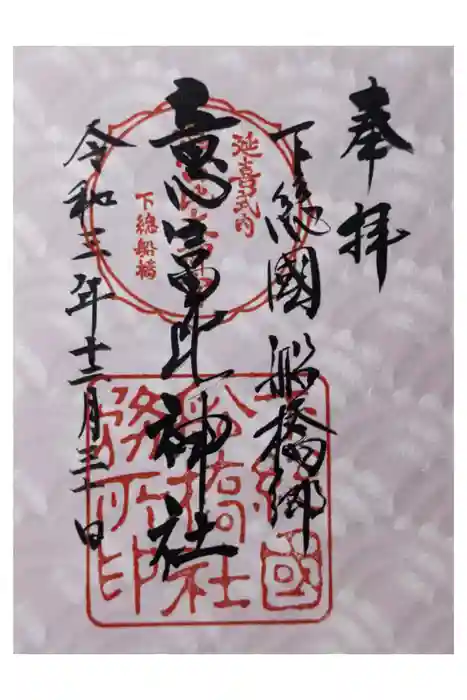 奉拝
下総國 船橋郷
意富比神社
令和三年十二月三十一日
延喜式内
下総船橋
下総國
船橋社
務所印